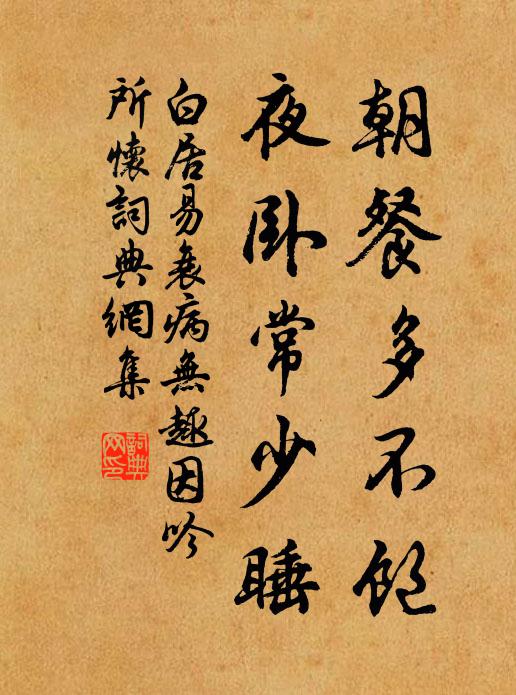 朝餐多不飽
夜卧常少睡
白居易衰病無趣因吟
所懷詞典網集
詞典网印